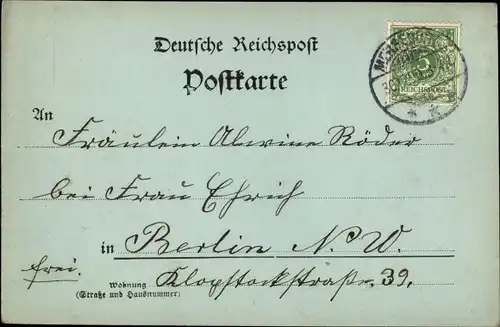 Deutsche Reichspost
Postkarte
5
REICHSPOST
An
Fräulein Alwine Röder
bei Frau Ehrich
in Berlin N. W.
frei.
Wohnung
(Straße und Hausnummer)
Klopstockstraße 39.